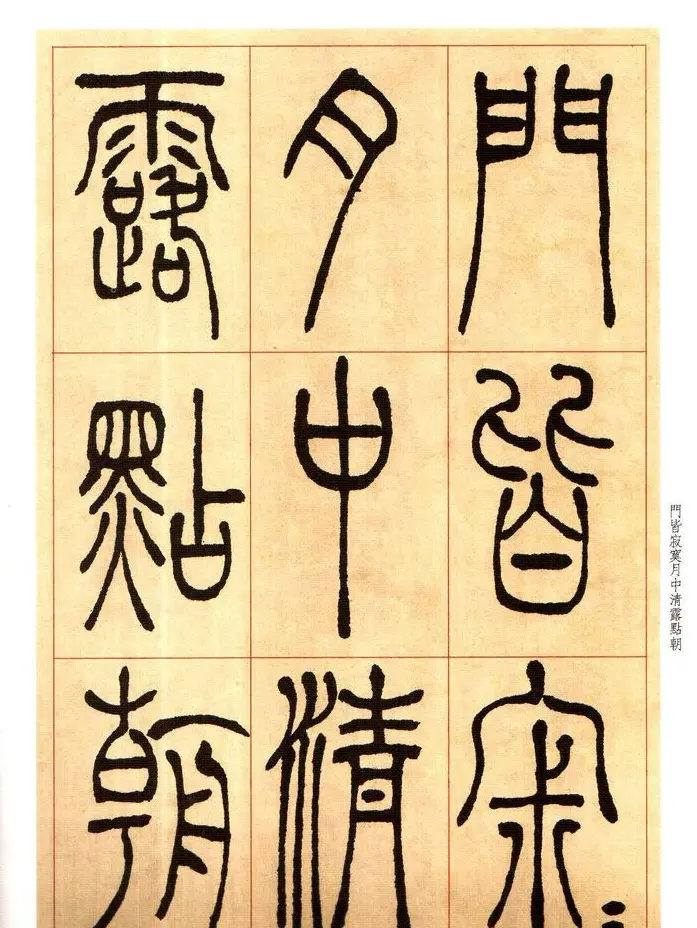 門皆寂〻
月中清
露點朝
門皆寂寞月中清露點朝